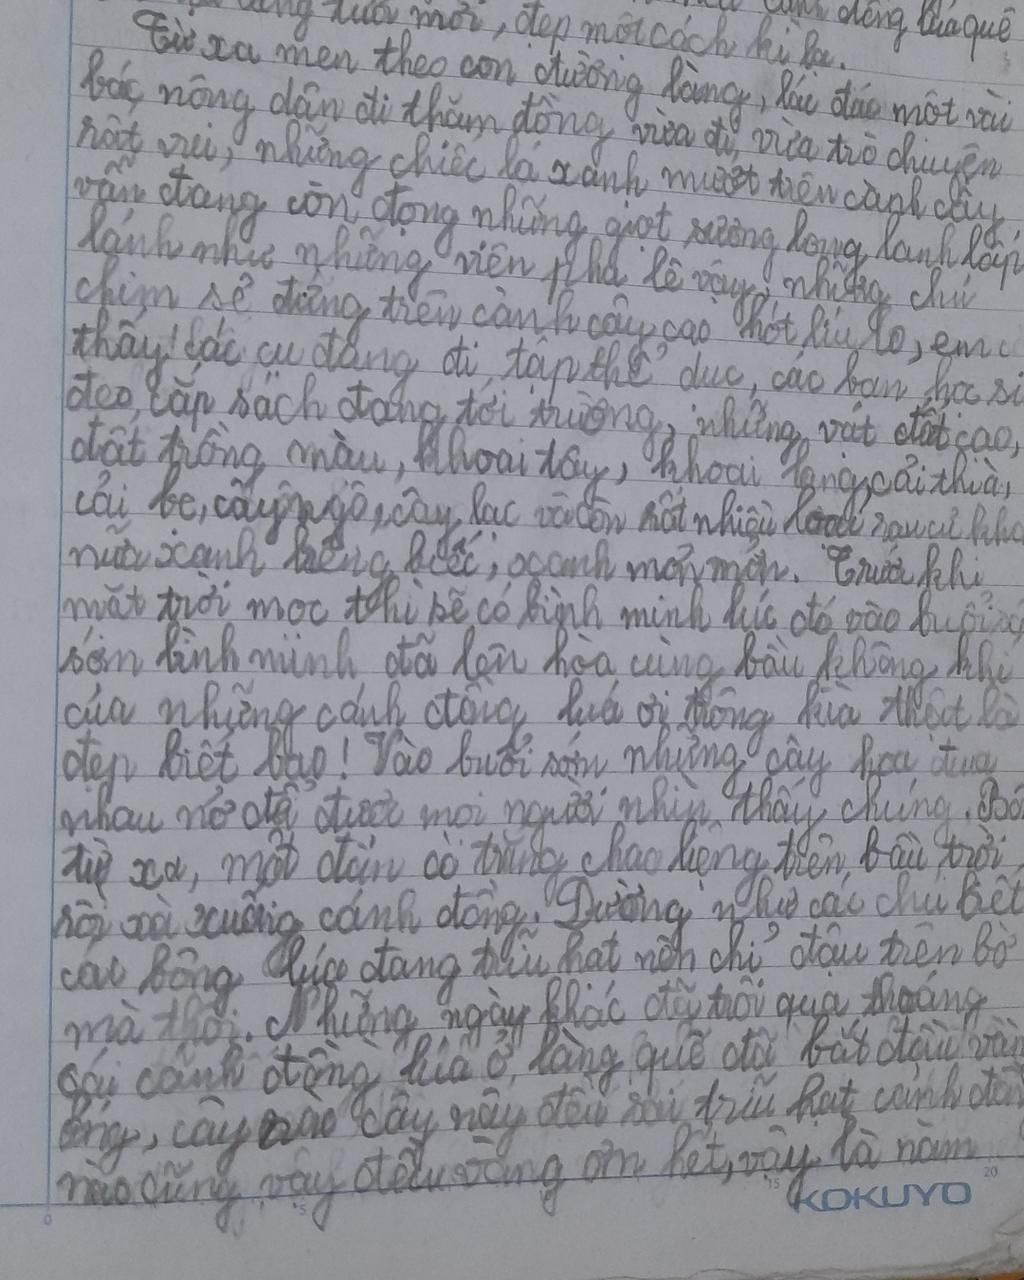 tươi mới, đẹp một cách kì lạ. cánh đồng lúa quê
Từ xa men theo con đường làng, lác đác một vài
bác nông dân đi thăm đồng vừa đi, vừa trò chuyện
rất vui, những chiếc lá xanh mướt trên cành cây
vẫn đang còn đọng những giọt sương long lanh lấp
lánh như những viên pha lê vậy, những chú
chim sẻ đứng trên cành cây cao hót líu lo, em
thấy các cụ đang đi tập thể dục, các bạn học si
đeo cặp sách đang tới trường, những vát đất cao,
đất trồng màu, khoai tây, khoai lang, cải thìa,
cải be, cây ngô, cây lạc và còn rất nhiều loại rau củ khá
nữa xanh biêng biếc, xanh mơn mởn. Trước khi
mặt trời mọc thì sẽ có bình minh lúc đó vào buổi sá
sớm bình minh đã lên hòa cùng bầu không khí
của những cánh đồng lúa ơi trông kìa thật là
đẹp biết bao! Vào buổi sớm những cây hoa đua
nhau nở để được mọi người nhìn thấy chúng.
từ xa, một đàn cò trắng chao liệng trên bầu trời
rồi xà xuống cánh đồng. Dường như các chú biết
các bông lúa đang trĩu hạt nên chỉ đậu trên bờ
mà thôi. Những ngày khác đã trôi qua thoáng
cái cánh đồng lúa ở làng quê đã bắt đầu vàn
óng, cây nào cây nấy đều sai trĩu hạt cánh đồn
nào cũng vậy đều vàng ươm hết, vậy là năm
KOKUYO
0 5 15 20